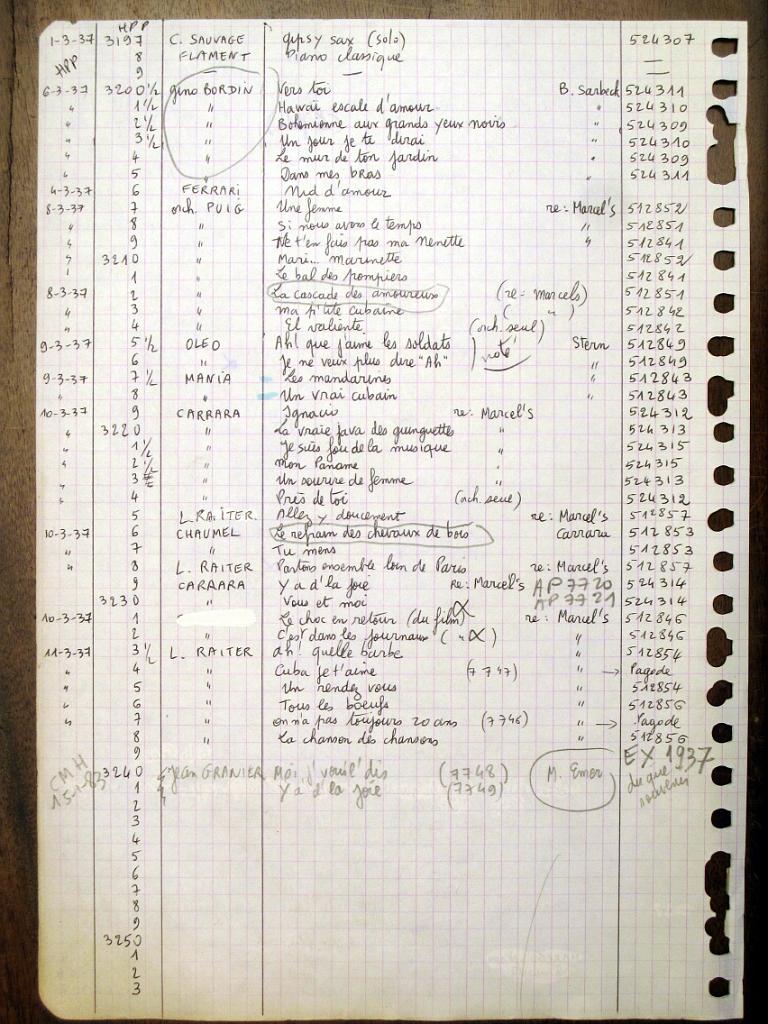 HPP
1-3-37 3197 C. SAUVAGE gipsy sax (solo) 524307
HPP 8 FLAMENT Piano classique —
9 — —
6-3-37 3200 1/2 gino BORDIN Vers toi B. Sarbeck 524311
" 1 1/2 " Hawaï escale d'amour " 524310
" 2 1/2 " Bohemienne aux grands yeux noirs " 524309
" 3 1/2 " Un jour je te dirai " 524310
" 4 " Le mur de ton jardin " 524309
" 5 " Dans mes bras " 524311
4-3-37 6 FERRARI Nid d'amour
8-3-37 7 orch. PUIG Une femme re: Marcel's 512852
" 8 " Si nous avons le temps " 512851
" 9 " Ne t'en fais pas ma Nenette " 512841
" 3210 " Mari... marinette 512852
" 1 " Le bal des pompiers 512841
8-3-37 2 " La cascade des amoureux (re= marcels) 512851
" 3 " ma p'tite cubaine ( " ) 512842
" 4 " El valiente (orch. seul) 512842
9-3-37 5 1/2 OLEO Ah! que j'aime les soldats Stern 512849
6 " Je ne veux plus dire "Ah" noté " 512849
9-3-37 7 1/2 MANIA Les mandarines " 512843
" 8 " Un vrai cubain " 512843
10-3-37 9 CARRARA Ignacio re: Marcel's 524312
" 3220 " La vraie java des guinguettes " 524313
" 1 1/2 " Je suis fou de la musique " 524315
" 2 1/2 " mon Paname " 524315
" 3 " Un sourire de femme " 524313
" 4 " Près de toi (orch. seul) 524312
5 L. RAITER. Allez y doucement re: Marcel's 512857
10-3-37 6 CHAUMEL Le refrain des chevaux de bois Carrara 512853
" 7 " Tu mens 512853
" 8 L. RAITER Partons ensemble loin de Paris re: Marcel's 512857
9 CARRARA Y a d'la joie Re: Marcel's AP 7720 524314
3230 " Vous et moi AP 7721 524314
10-3-37 1 Le choc en retour (du film) re: Marcel's 512846
" 2 " C'est dans les journaux ( " ) " 512846
11-3-37 3 1/2 L. RAITER ah! quelle barbe " 512854
" 4 " Cuba je t'aime (7747) " → Pagode
" 5 " Un rendez vous " 512854
" 6 " Tous les boeufs " 512856
" 7 " on n'a pas toujours 20 ans (7746) " → Pagode
8 " La chanson des chansons " 512856
9
CMH 3240 Jean GRANIER Moi, j'vouil' dis (7748) M. Emer EX 1937
15-1-83 1 " Y a d'la joie (7749) du que
2
3
4
5
6
7
8
9
3250
1
2
3